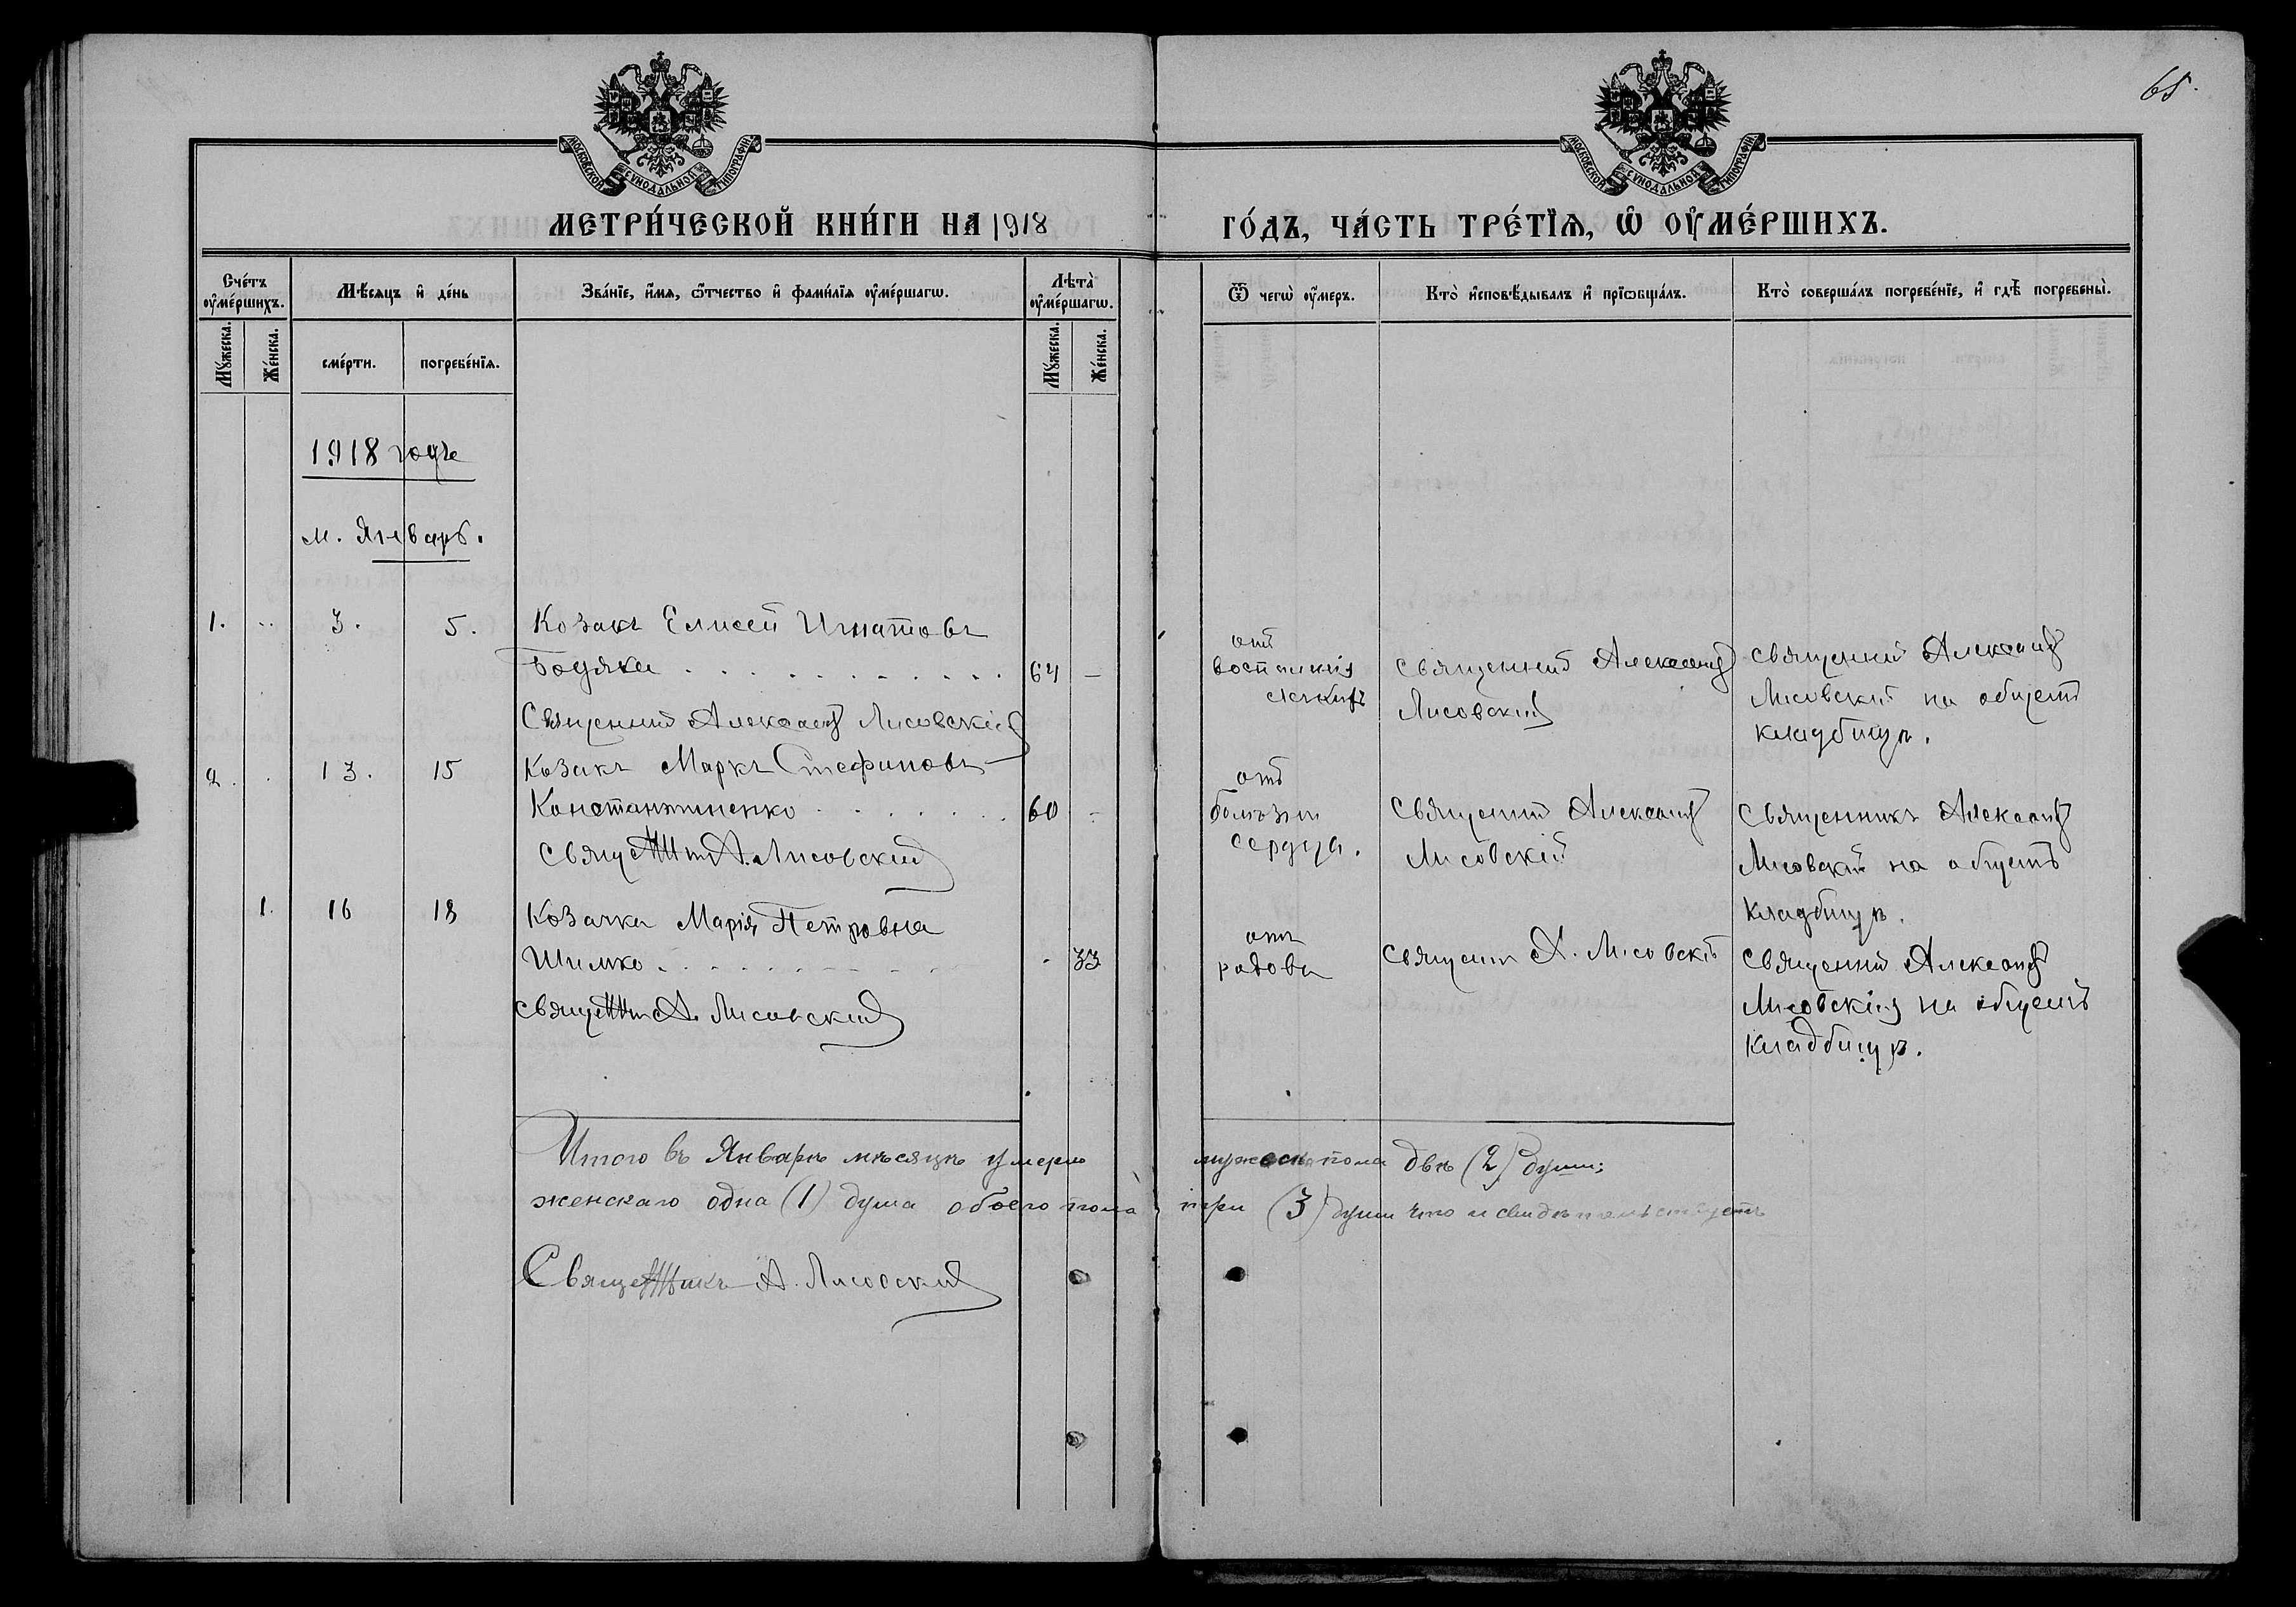 65.
МОСКОВСКОЙ СѴНОДАЛЬНОЙ ТИПОГРАФІИ
МОСКОВСКОЙ СѴНОДАЛЬНОЙ ТИПОГРАФІИ
МЕТРИ́ЧЕСКОЙ КНИ́ГИ НА 1918 ГО́ДЪ, ЧА́СТЬ ТРЕ́ТЇѦ, Ѡ҆ ОУ҆МЕ́РШИХЪ.
Сче́тъ оу҆ме́ршихъ.
Мѣ́сяцъ и҆ де́нь
Зва́нїе, и҆́мѧ, ѻ҆́тчество и҆ фами́лїѧ оу҆ме́ршагѡ.
Лѣта̀ оу҆ме́ршагѡ.
Ѿ чегѡ̀ оу҆́меръ.
Кто̀ и҆сповѣ́дывалъ и҆ прїѻбща́лъ.
Кто̀ соверша́лъ погребе́нїе, и҆ гдѣ̀ погребены̀.
Мꙋ́жеска.
Же́нска.
сме́рти.
погребе́нїѧ.
Мꙋ́жеска.
Же́нска.
1918 года
м. Январь.
1. 3. 5. Козакъ Елисей Игнатовъ
Бодяка 64 –
Священникъ Александръ Лисовскій
отъ
воспаленія
легкихъ
Священникъ Александръ
Лисовскій
Священникъ Александръ
Лисовскій на общемъ
кладбищѣ.
2. 13. 15 Козакъ Маркъ Стефановъ
Константиненко 60 -
Священникъ А. Лисовскій
отъ
болѣзни
сердца.
Священникъ Александръ
Лисовскій
Священникъ Александръ
Лисовскій на общемъ
кладбищѣ.
1. 16 18 Козачка Марія Петровна
Шимко 33
Священникъ А. Лисовскій
отъ
родовъ
Священникъ А. Лисовскій
Священникъ Александръ
Лисовскій на общемъ
кладбищѣ.
Итого въ Январѣ мѣсяцѣ умерло мужеск. пола двѣ (2) души;
женскаго одна (1) душа обоего пола три (3) души что и свидѣтельствуетъ
Священникъ А. Лисовскій